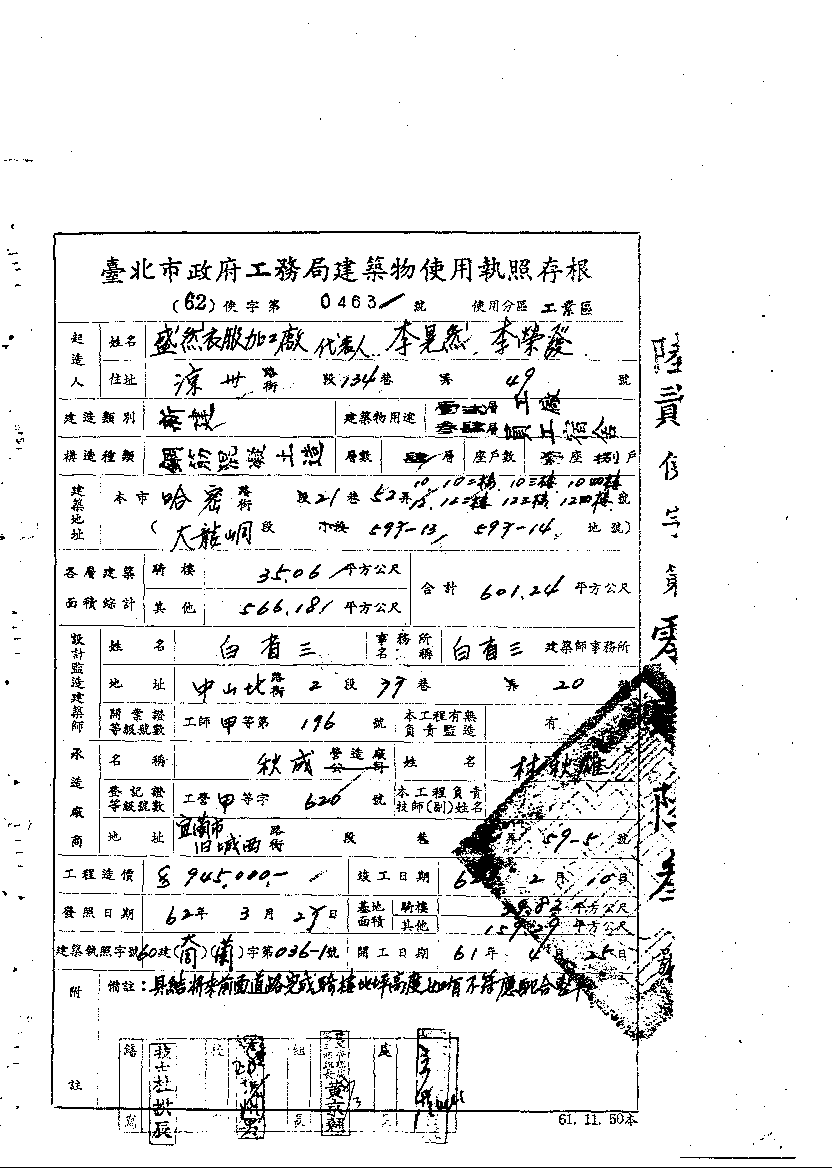 臺北市政府工務局建築物使用執照存根
(62)使字第 0463 號 使用分區 工業區
起造人 姓名 盛然衣服加工廠 代表人 李晃然 李榮發
住址 涼州 路街 段 134 巷 弄 49 號
建造類別 新建 建築物用途 壹貳層 工廠
叁肆層 員工宿舍
構造種類 鋼筋混凝土造 層數 肆 層 座戶數 壹 座 捌 戶
建築地址 本市 哈密 路街 段 21 巷 52 弄 10. 10二樓 10三樓 10四樓
12. 12二樓 12三樓 12四樓 號
(大龍峒 段 小段 597-13 597-14 地號)
各層建築面積綜計 騎樓 35.06 平方公尺 合計 601.24 平方公尺
其他 566.18 平方公尺
設計監造建築師 姓名 白省三 事務所名稱 白省三 建築師事務所
地址 中山北 路街 2 段 39 巷 弄 20
開業證等級號數 工師 甲 等第 196 號 本工程有無負責監造 有
承造廠商 名稱 秋成 營造廠公司 姓名 林秋雄
登記證等級號數 工營 甲 等字 620 號 本工程負責技師(副)姓名
地址 宜蘭市舊城西 路街 段 巷 弄 59-5 號
工程造價 945,000.- 竣工日期 62 2 月 10 日
發照日期 62 年 3 月 29 日 基地面積 騎樓 平方公尺
其他 平方公尺
建築執照字號 60 建( )( )字第 036-1 號 開工日期 61 年 4 月 25 日
附註 備註:具結將來前面道路完成騎樓地坪高度如有不符應配合
繕寫 技士杜 校 組長 黃 處長
61. 11. 50本
陸貳使字第零